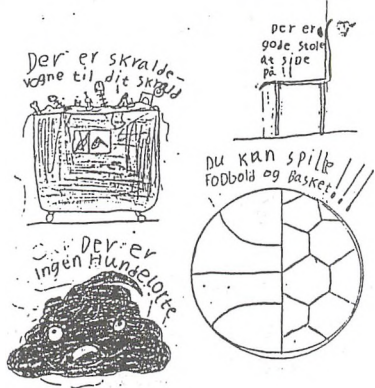 Der er skralde-
vogne til dit skrald
Der er
gode stole
at side
på!!
Du kan spille
Fodbold og Basket!!
Der er
ingen Hundelorte